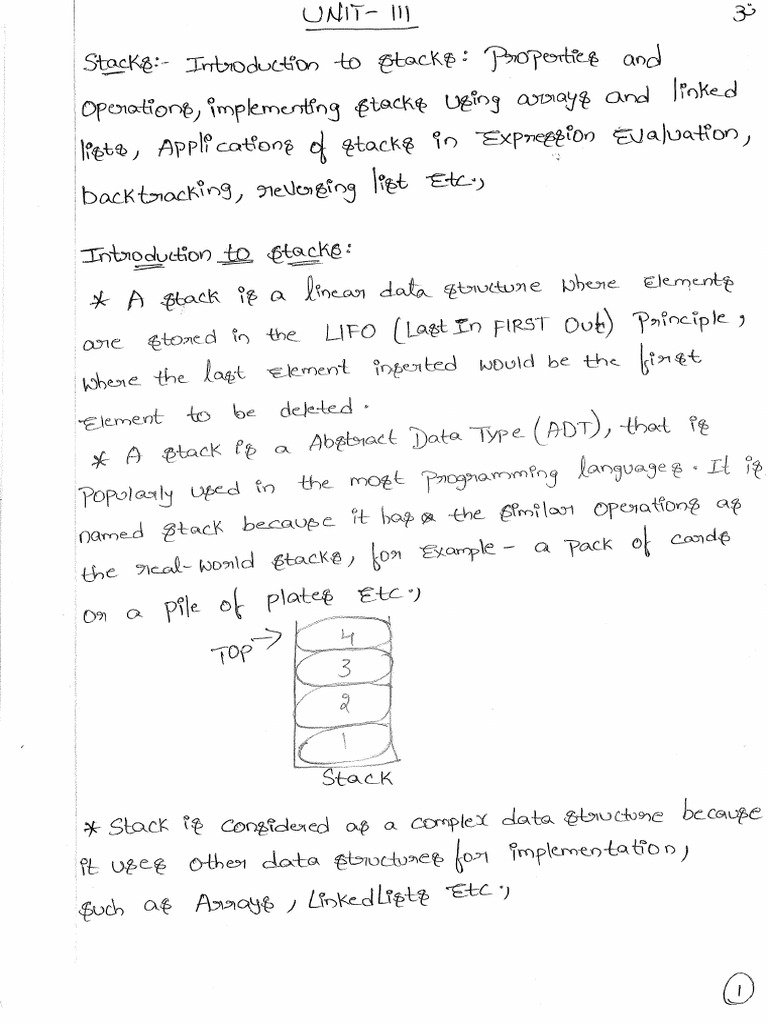 UNIT-III
Stacks:- Introduction to stacks: Properties and
Operations, implementing stacks using arrays and linked
lists, Applications of stacks in Expression Evaluation,
backtracking, reversing list Etc.,
Introduction to stacks:
* A stack is a linear data structure where Elements
are stored in the LIFO (Last In FIRST Out) Principle,
where the last Element inserted would be the first
Element to be deleted.
* A stack is a Abstract Data Type (ADT), that is
Popularly used in the most programming languages. It is
named stack because it has the similar operations as
the real-world stacks, for Example - a pack of cards
or a pile of plates Etc.,
TOP → 4
3
2
1
Stack
* Stack is considered as a complex data structure because
it uses other data structures for implementation,
such as Arrays, Linked Lists Etc.,
1